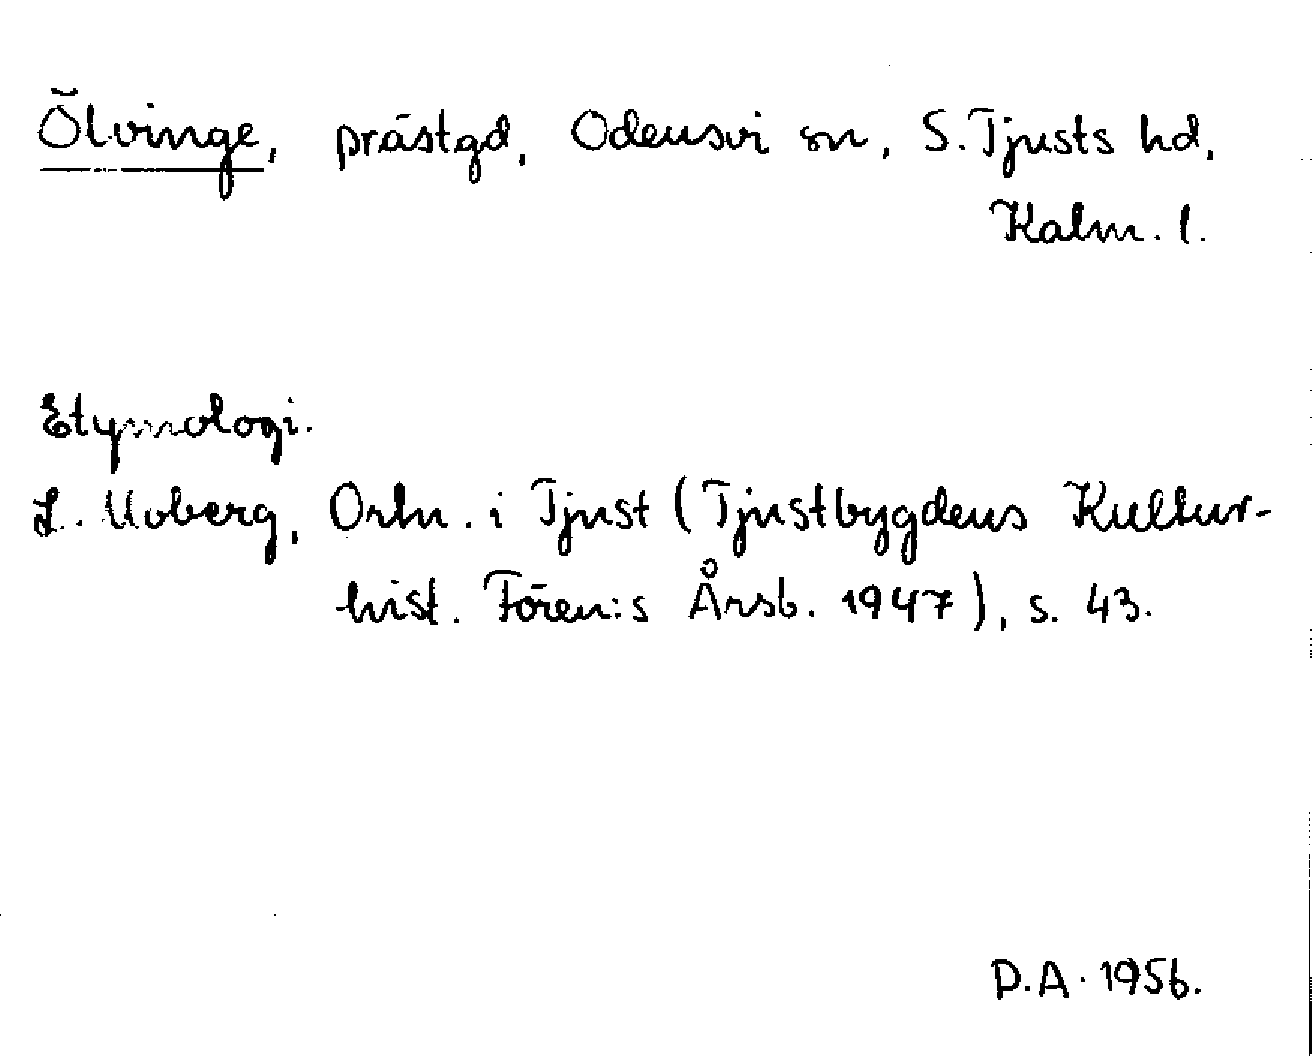 Ölvinge, prästgd, Odensvi sn, S. Tjusts hd,
Kalm. l.
Etymologi.
L. Moberg, Ortn. i Tjust (Tjustbygdens Kultur-
hist. Fören:s Årsb. 1947), s. 43.
D.A. 1956.